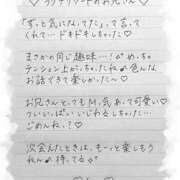 ♡ ラグナグゲートのお兄さん ♡
「ずっと気になってた」って言って
くれて…ドキドキしちゃった♡
まさかの同じ趣味…！がめっちゃ
テンション上がっちゃったね 色んな
お話できて楽しかった〜♡
お兄さんとってもM気あって可愛い♡
ついいっぱいいじわるしちゃった
ごめんね？♡
次会えたときは、もーっと楽しもう
ね 待ってる♡